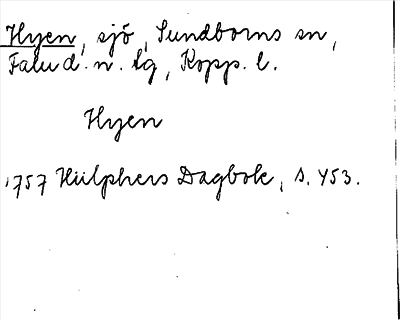 Hyen, sjö, Sundborns sn,
Falu d. n. lg, Kopp. l.
Hyen
1757 Hülphers Dagbok, s. 453.